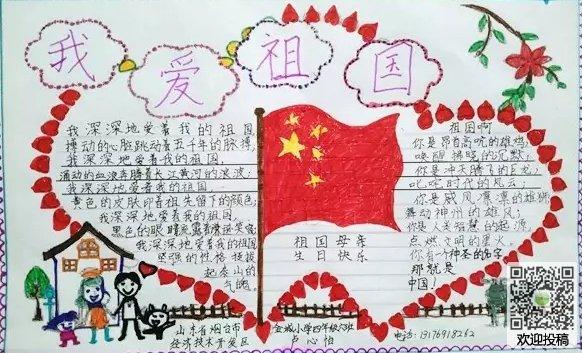 我爱祖国
我深深地爱着我的祖国
搏动的心脏跳动着五千年的脉搏
我深深地爱着我的祖国
涌动的血液奔腾着长江黄河的波波
我深深地爱着我的祖国
黄色的皮肤印着祖先留下的颜色
我深深地爱着我的祖国
黑色的眼睛
我深深地爱着我的祖国
坚强的性格挺拔
起泰山的
气魄。
祖国母亲
生日快乐
祖国啊
你是昂首高吭的雄鸡
唤醒拂晓的沉默
你是冲天腾飞的巨龙
叱咤时代的风云
你是威风凛凛的雄狮
舞动神州的雄风
你是人类智慧的起源
点燃文明的星火。
你有个神圣的名字
那就是
中国!
山东省烟台市
经济技术开发区
金城小学四年级六班
卢心怡
电话:13176918262
欢迎投稿